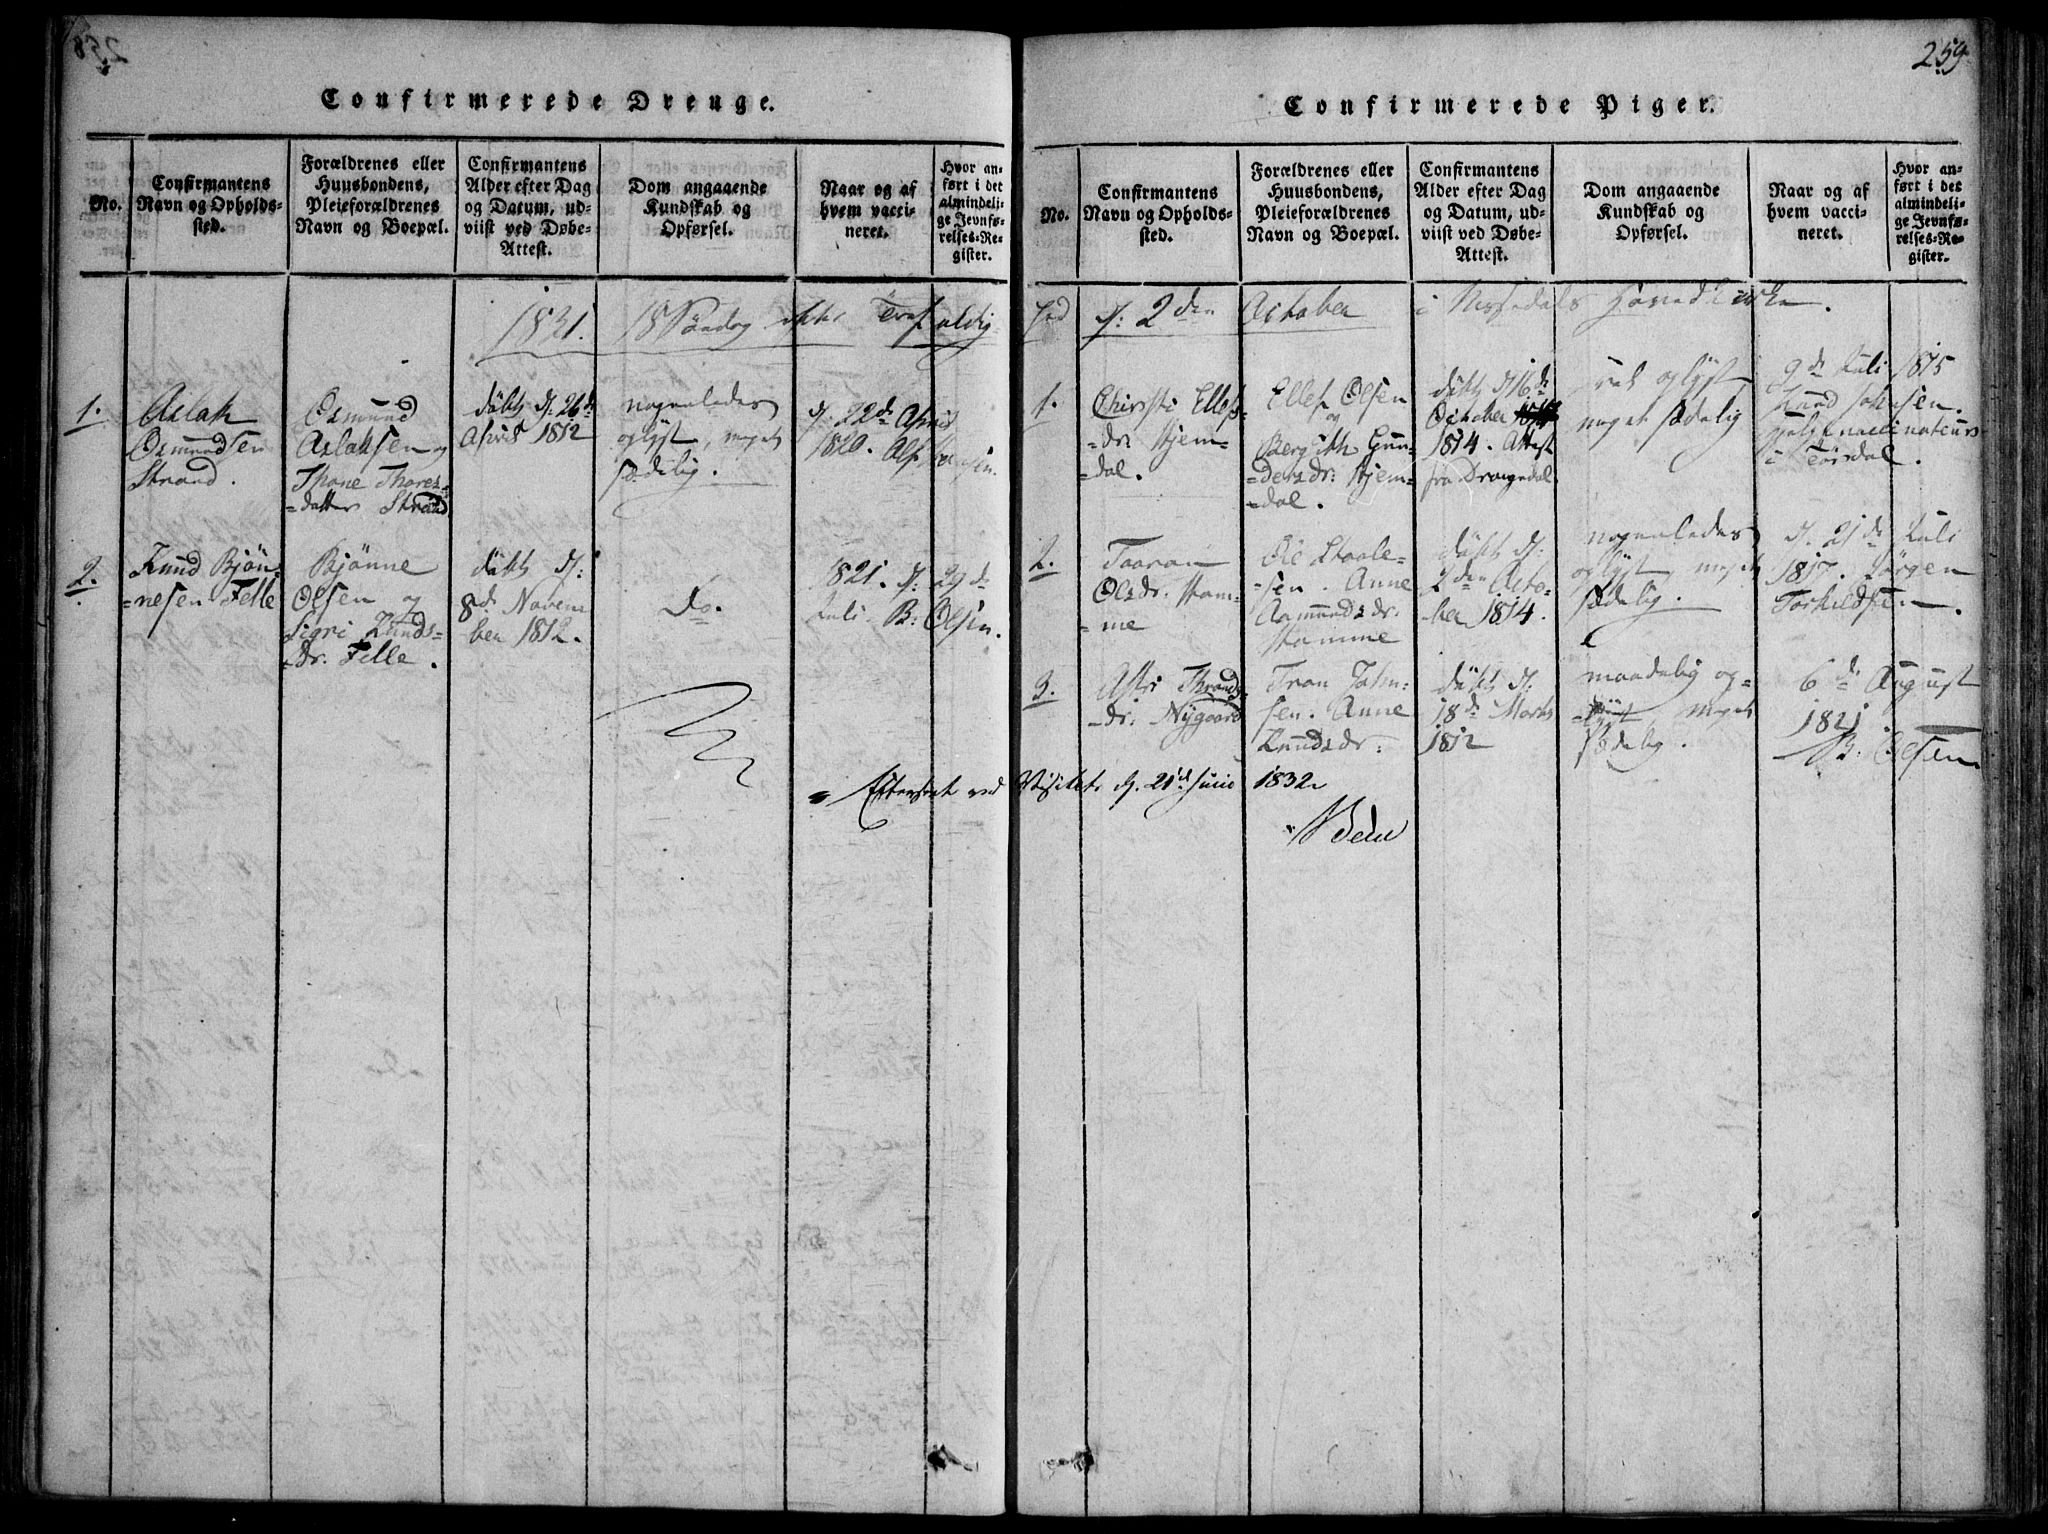 259.
Confirmerede Drenge.
No.
Confirmantens
Navn og Opholds-
sted.
Forældrenes eller
Huusbondens,
Pleieforældrenes
Navn og Boepæl.
Confirmantens
Alder efter Dag
og Datum, ud-
viist ved Døbe-
Attest.
Dom angaaende
Kundskab og
Opførsel.
Naar og af
hvem vacci-
neret.
Hvor an-
ført i det
almindeli-
ge Jevnfø-
relses-Re-
gister.
1831. 18 Söndag efter Trefoldig-
1.
Aslak
Osmundsen
Strand.
Osmund
Aslaksen og
Thone Thores-
=datter Strand
döbt d: 26de
April 1812
nogenledes
oplyst, meget
sædelig.
d. 22de April
1820. Alf
2.
Knud Bjön-
=nesen Felle
Bjönne
Olsen og
Sigri Knuds-
=dr. Felle.
döbt d:
8de Novem
ber 1812.
do.
1821. d. 29de
Juli. B. Olsen.
Confirmerede Piger.
No.
Confirmantens
Navn og Opholds-
sted.
Forældrenes eller
Huusbondens,
Pleieforældrenes
Navn og Boepæl.
Confirmantens
Alder efter Dag
og Datum, ud-
viist ved Døbe-
Attest.
Dom angaaende
Kundskab og
Opførsel.
Naar og af
hvem vacci-
neret.
Hvor an-
ført i det
almindeli-
ge Jevnfø-
relses-Re-
gister.
d: 2den October i Nissedals Hovedkirke.
1.
Chirsti Ellefs-
dr. Hjem-
=dal.
Ellef Olsen
og
Bergith Gun-
=dersdr: Hjem-
=dal.
döbt d 16de
October
1814. Attest
fra Drangedal.
oplyst
meget sædelig
9de Juli 1815
Knud Johnsen.
Hjelpevaccinateur
i Törsdal.
2.
Taaran
Olsdr. Stam-
=me
Ole Staale-
=sen. Anne
Aamundsdr.
Stamme
döbt d:
2den Octo-
=ber 1814.
nogenledes
oplyst, meget
sædelig.
d. 21de Juli
1817. Jörgen
Torkildsen.
3.
Astri Thronds-
=dr. Nygaard
Tron John-
sen. Anne
Knudsdr.
döbt d:
18de Marts
1812
maadelig op-
=lyst, meget
sædelig.
6de August
1821
B. Olsen
Efterseet ved Visitats d. 21de Junio 1832